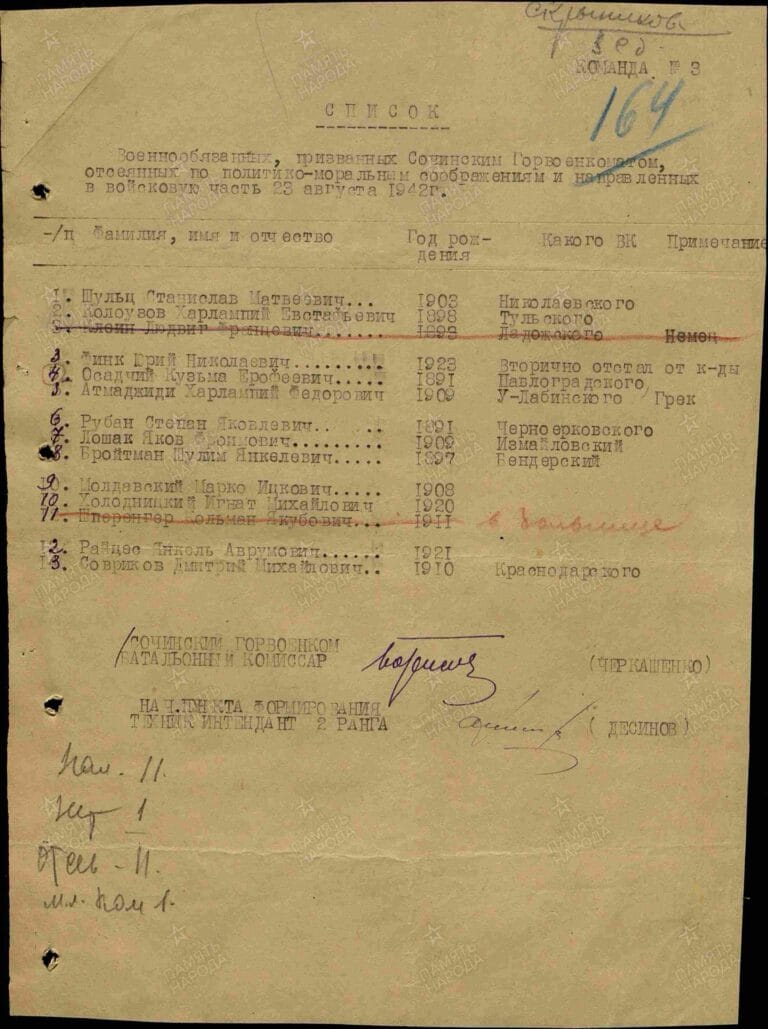 Скрынников
КОМАНДА № 3
164
СПИСОК
Военнообязанных, призванных Сочинским Горвоенкоматом,
отсеянных по политико-моральным соображениям и направленных
в войсковую часть 23 августа 1942г.
-/п Фамилия, имя и отчество Год рож- Какого ВК Примечание
дения
1. Шульц Станислав Матвеевич... 1903 Николаевского
2. Колоузов Харлампий Евстафьевич 1898 Тульского
3. Клейн Людвиг Францевич....... 1893 Ладожского Немец
3. Финк Юрий Николаевич......... 1923 Вторично отстал от к-ды
4. Осадчий Кузьма Ерофеевич..... 1891 Павлоградского
5. Атмаджиди Харлампий Федорович 1909 У-Лабинского Грек
6. Рубан Степан Яковлевич.. 1891 Черноерковского
7. Лошак Яков Фроимович......... 1909 Измайловский
8. Бройтман Шулим Янкелевич..... 1897 Бендерский
9. Молдавский Марко Ицкович..... 1908
10. Холодницкий Игнат Михайлович 1920
11. Шперенгер Кольман Якубович... 1911 в больнице
12. Райцес Янкель Аврумович...... 1921
13. Совриков Дмитрий Михайлович.. 1910 Краснодарского
СОЧИНСКИЙ ГОРВОЕНКОМ
БАТАЛЬОННЫЙ КОМИССАР (ЧЕРКАШЕНКО)
НАЧ.ПУНКТА ФОРМИРОВАНИЯ
ТЕХНИК ИНТЕНДАНТ 2 РАНГА ( ДЕСИНОВ)
Нал. 11.
1
Отсь - 11.
мл. Ком 1.
ПАМЯТЬ НАРОДА